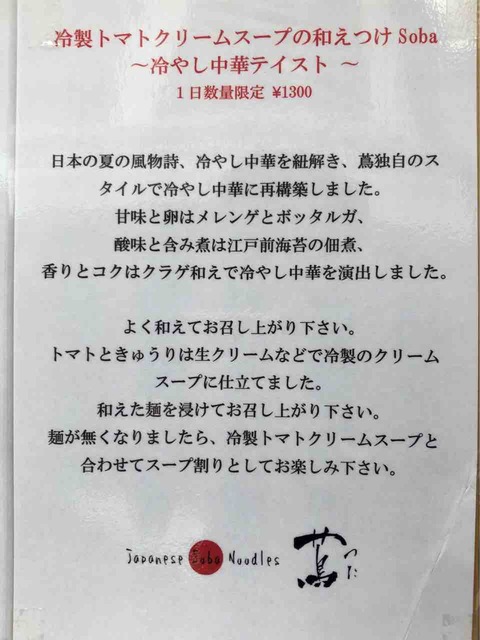 冷製トマトクリームスープの和えつけ Soba
～冷やし中華テイスト ～
１日数量限定 ¥1300
日本の夏の風物詩、冷やし中華を紐解き、蔦独自のス
タイルで冷やし中華に再構築しました。
甘味と卵はメレンゲとボッタルガ、
酸味と含み煮は江戸前海苔の佃煮、
香りとコクはクラゲ和えで冷やし中華を演出しました。
よく和えてお召し上がり下さい。
トマトときゅうりは生クリームなどで冷製のクリーム
スープに仕立てました。
和えた麺を浸けてお召し上がり下さい。
麺が無くなりましたら、冷製トマトクリームスープと
合わせてスープ割りとしてお楽しみ下さい。
Japanese Soba Noodles 蔦 つた